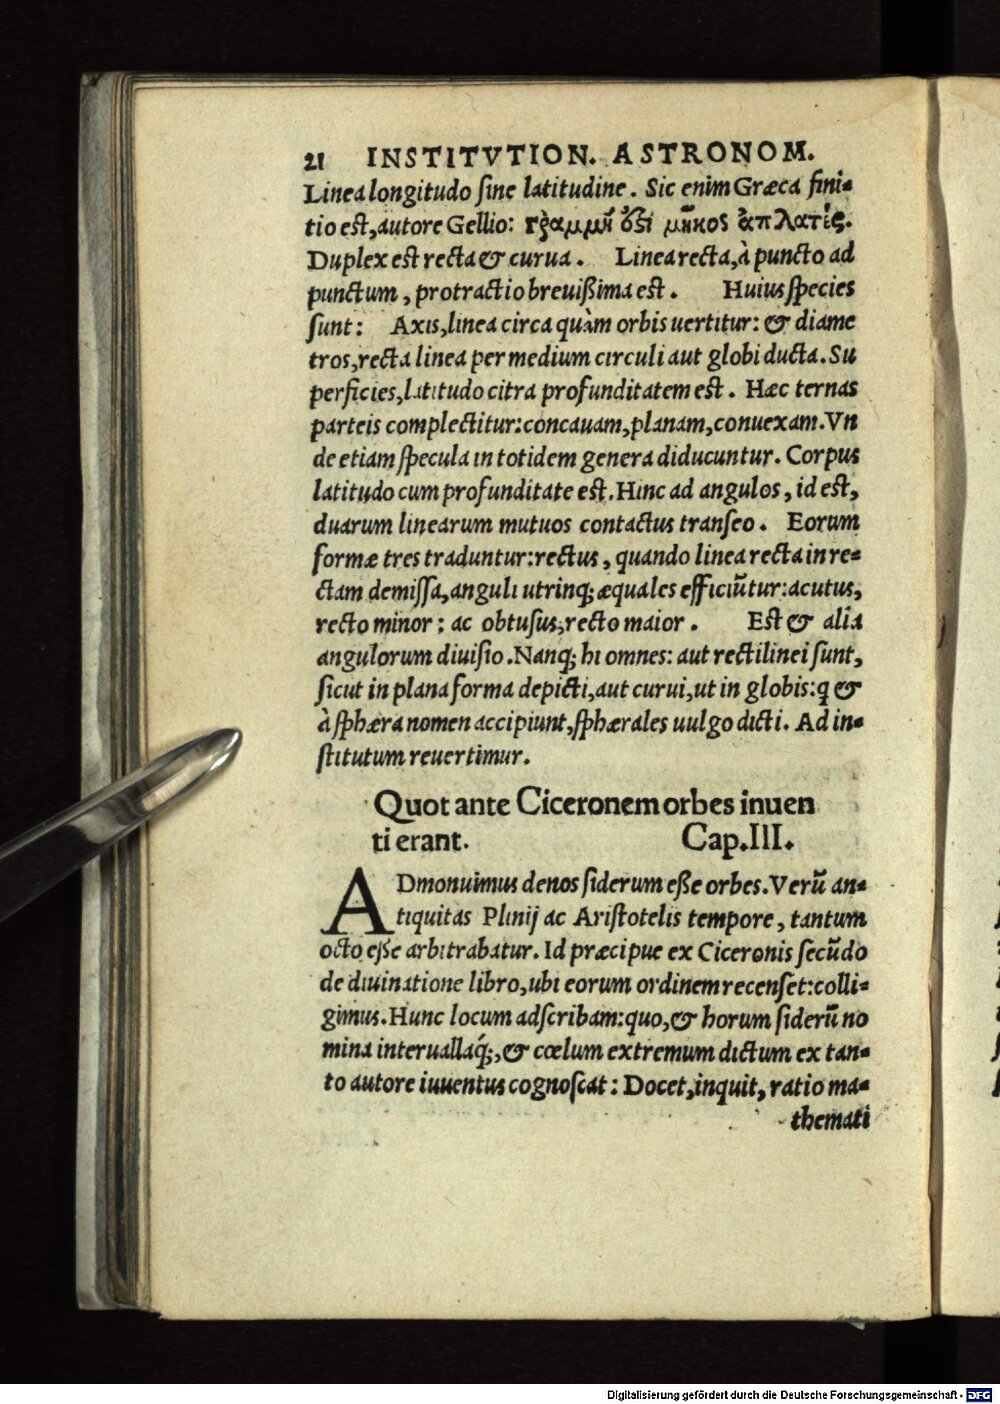 21 INSTITVTION. ASTRONOM.
Linea longitudo ſine latitudine. Sic enim Græca fini-
tio est, autore Gellio: γραμμή ὅϛι μῆκος ἀπλατὲς.
Duplex est recta & curua. Linea recta, à puncto ad
punctum, protractio breuißima est. Huius ſpecies
ſunt: Axis, linea circa quàm orbis uertitur: & diame
tros, recta linea per medium circuli aut globi ducta. Su
perficies, latitudo citra profunditatem est. Hæc ternas
parteis complectitur: concauam, planam, conuexam. Vn
de etiam ſpecula in totidem genera diducuntur. Corpus
latitudo cum profunditate est. Hinc ad angulos, id est,
duarum linearum mutuos contactus tranſeo. Eorum
formæ tres traduntur: rectus, quando linea recta in re-
ctam demiſſa, anguli utrinq; æquales efficiũtur: acutus,
recto minor: ac obtuſus, recto maior. Est & alia
angulorum diuiſio. Nanq; hi omnes: aut rectilinei ſunt,
ſicut in plana forma depicti, aut curui, ut in globis: q &
à ſphæra nomen accipiunt, ſphærales uulgo dicti. Ad in-
ſtitutum reuertimur.
Quot ante Ciceronem orbes inuen
ti erant. Cap. III.
ADmonuimus denos ſiderum eße orbes. Verũ an-
tiquitas Plinij ac Ariſtotelis tempore, tantum
octo eße arbitrabatur. Id præcipue ex Ciceronis ſecũdo
de diuinatione libro, ubi eorum ordinem recenſet: colli-
gimus. Hunc locum adſcribam: quo, & horum ſiderũ no
mina interuallaq́;, & cœlum extremum dictum ex tan-
to autore iuuentus cognoſcat: Docet, inquit, ratio ma-
themati
Digitalisierung gefördert durch die Deutsche Forschungsgemeinschaft - DFG